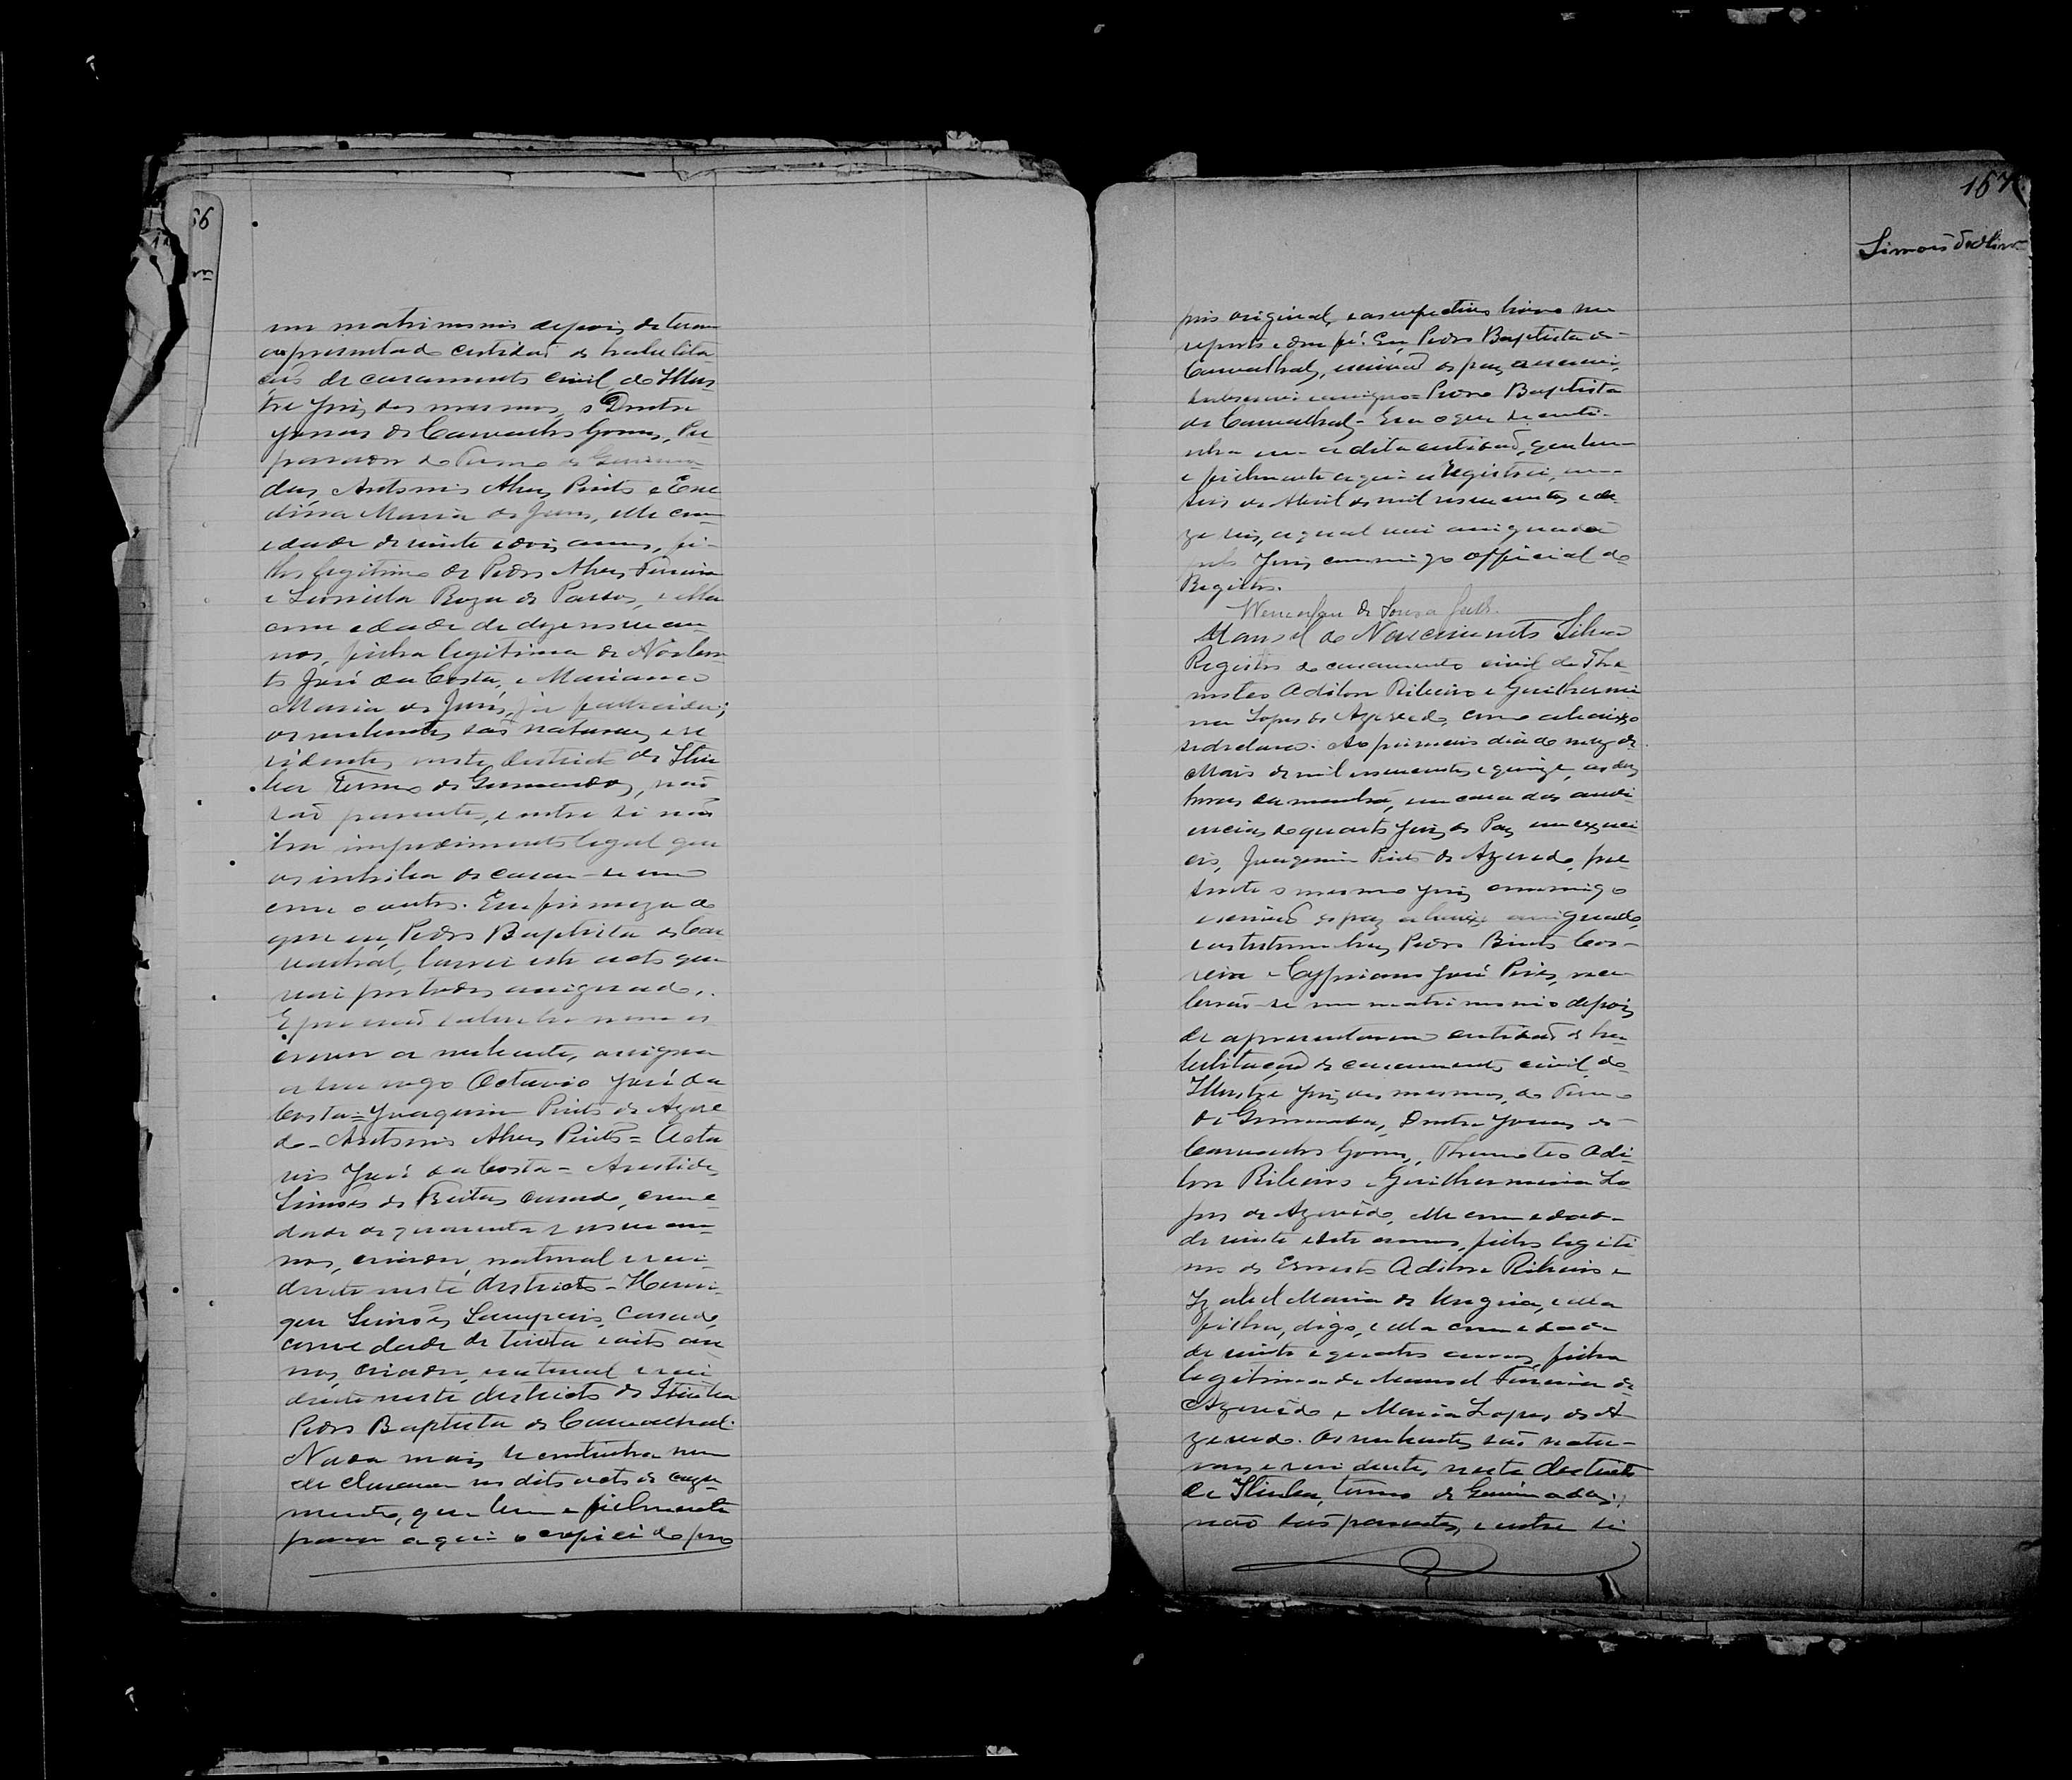 56
em matrimonio depois de terem
apresentado certidaõ de habilita
çaõ de casamento civil, do Illus
tre Juiz dos mesmos, o Doutor
de Carvalho Gomes, Pre
parador do Termo de
das, Antonio Alves Pinto e Ene
dina Maria de Jesus, elle com
edade de vinte e dois annos, fi-
lho legitimo de Pedro Alves Ferreira
e Leonilla Roza de Passos, e ella
com edade de dezenove an
nos, filha legitima de
José da Costa, e Marianna
Maria de Jesus, já fallecida;
os nubentes saõ naturaes e re
sidentes neste districto de Itiu
ba Termo de não
saõ parentes, e entre si não
ha impedimento legal que
os inhiba de casar-se um
com o outro. Em firmeza do
que eu, Pedro Baptista de Car
valhal, lavrei este acto que
vai por todos assignado.
E por naõ saber ler nem es
crever a nubente, assigna
a seu rogo Octavio José da
Costa = Joaquim Pinto de Azeve
do - Antonio Alves Pinto = Octa
vio José da Costa = Aristides
Simões de Freitas casado, com e
dade de quarenta e nove an-
nos, criador, natural e resi-
dente neste districto - Henri-
que Simões casado,
com edade de trinta e oito an
nos, criador, natural e resi
dente neste districto de Itiuba
Pedro Baptista de Carvalhal.
Nada mais se continha nem
se declarava no dito acto de casa
mento, que bem e fielmente
para aqui o copiei do pro
167
Simoẽs
prio original, e ao respectivo livro me
reporto e dou fé. Eu, Pedro Baptista de
Carvalhal, escrivaõ de paz, o escrevi,
subscrevi e assigno = Pedro Baptista
de Carvalhal - Era o que se conti-
nha em a dita certidaõ, que bem
e fielmente aqui a registrei, em
seis de Abril de mil novecentos e de
zeseis, a qual vai assignada
pelo Juiz commigo official do
Registro.
de Souza
Manoel do Nascimento Silva
Registro do casamento civil de
Adilon Ribeiro e Guilhermi
na Lopes de Azevedo, como abaixo
se declara: Ao primeiro dia do mez de
Maio de mil novecentos e quinze, as dez
horas da manhã, em casa das audi
encias do quarto Juiz de Paz em exerci
cio, Joaquim Pinto de Azevedo, pre
sente o mesmo Juiz commigo
escrivaõ de paz abaixo assignado,
e as testemunhas, Pedro Cor-
reia e Cypriano José Pires, rece
beraõ-se em matrimonio depois
de apresentarem certidaõ de ha
bilitaçaõ de casamento civil do
Illustre Juiz dos mesmos, do Termo
de Doutor
Carvalho Gomes, Adi-
lon Ribeiro e Guilhermina Lo
pes de Azevêdo, elle com edade
de vinte e sete annos, filho legiti
mo de Ernesto Adilon Ribeiro e
Izabel Maria de e ella
filha, digo, e ella com edade
de vinte e quatro annos, filha
legitima de Manoel Ferreira de
Azevêdo e Maria Lopes de A
zevedo. Os nubentes saõ natu-
raes e residentes, neste districto
de Itiuba, termo de
não saõ parentes, e entre si